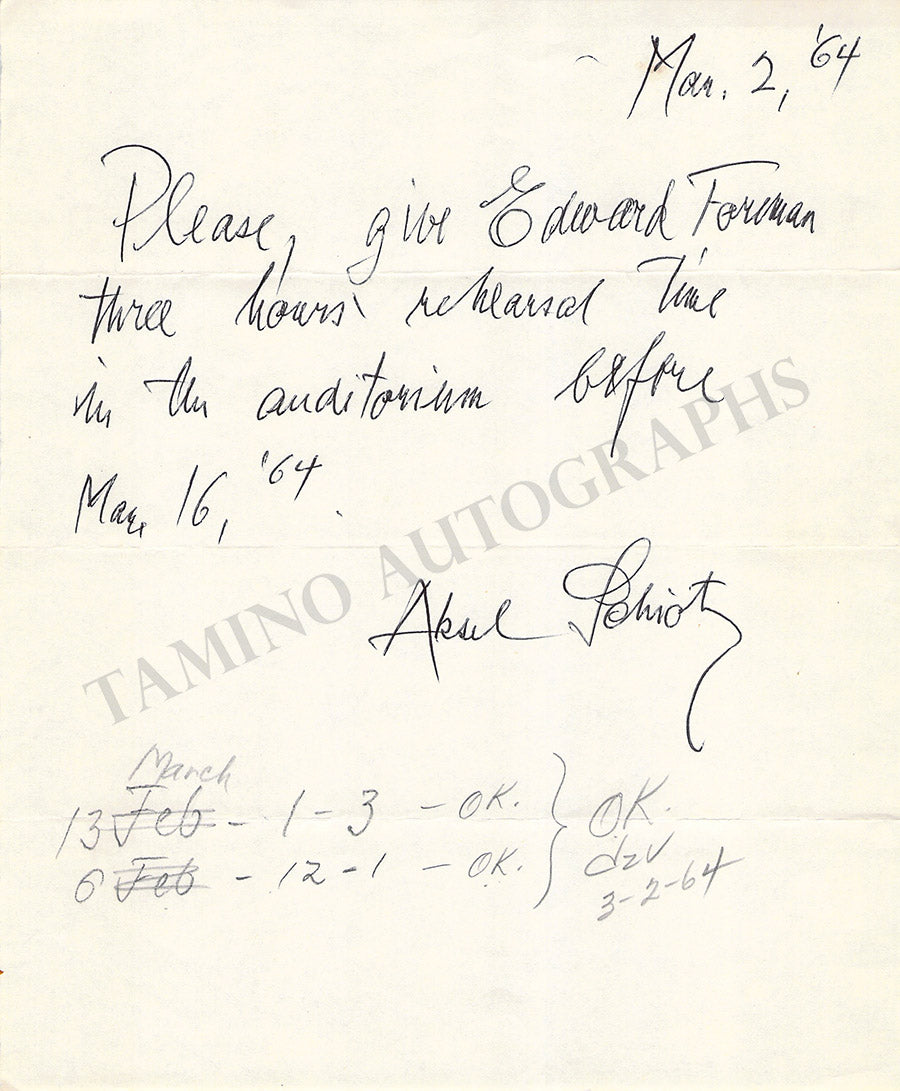 Mar. 2, '64
Please, give Edward Foreman
three hours' rehearsal time
in the auditorium before
Mar. 16, '64.
Aksel Schiotz
TAMINO AUTOGRAPHS
March
13 Feb - 1 - 3 - OK.
6 Feb - 12 - 1 - OK.
OK.
dzv
3-2-64